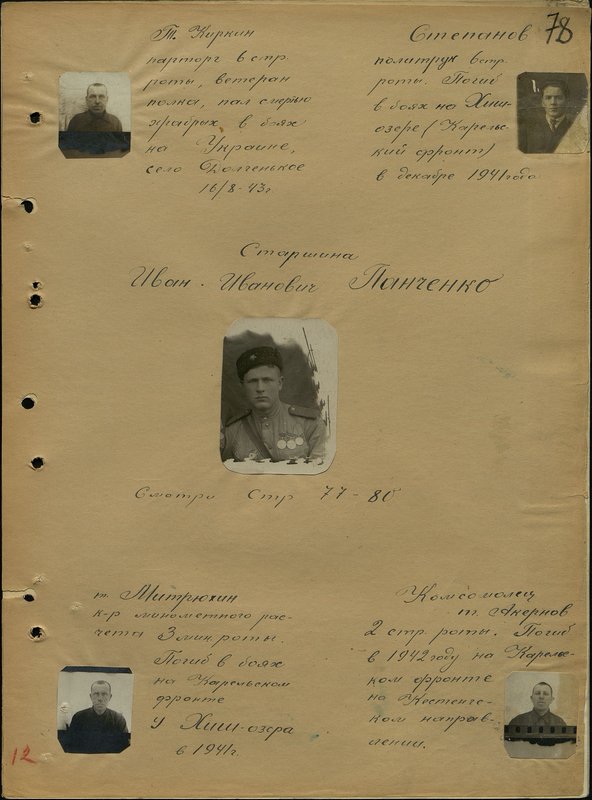 78
Т. Киркин
парторг в стр.
роты, ветеран
полка, пал смертью
храбрых в боях
на Украине,
село Долгенькое
16/8-43г.
Степанов
политрук в стр.
роты. Погиб
в боях на Хиш-
озере (Карельс-
кий фронт)
в декабре 1941 года
1.
Старшина
Иван Иванович Панченко
Смотри Стр 77-80
т. Митрюхин
к-р минометного рас-
чета 3 мин. роты.
Погиб в боях
на Карельском
фронте
у Хиш-озера
в 1941г.
Комсомолец
т. Акернов
2 стр. роты. Погиб
в 1942 году на Карельс-
ком фронте
на Кестенгс-
ком направ-
лении.
12